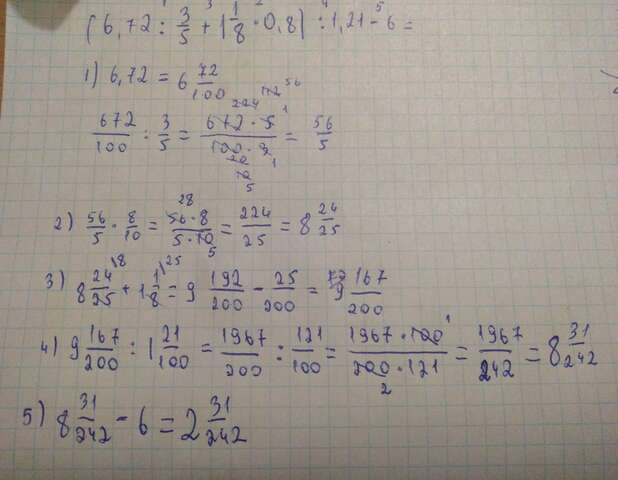 (6,72 : 3/5 + 1 1/8 · 0,8) : 1,21 - 6 =
1) 6,72 = 6 72/100
672/100 : 3/5 = 672 · 5 / 100 · 3 = 56/5
2) 56/5 · 8/10 = 56 · 8 / 5 · 10 = 224/25 = 8 24/25
3) 8 24/25 + 1 1/8 = 9 192/200 - 25/200 = 9 167/200
4) 9 167/200 : 1 21/100 = 1967/200 : 121/100 = 1967 · 100 / 200 · 121 = 1967/242 = 8 31/242
5) 8 31/242 - 6 = 2 31/242